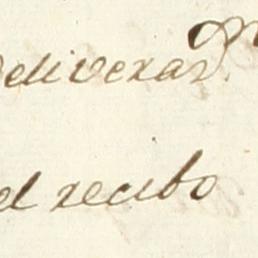 deliverar
el recibo